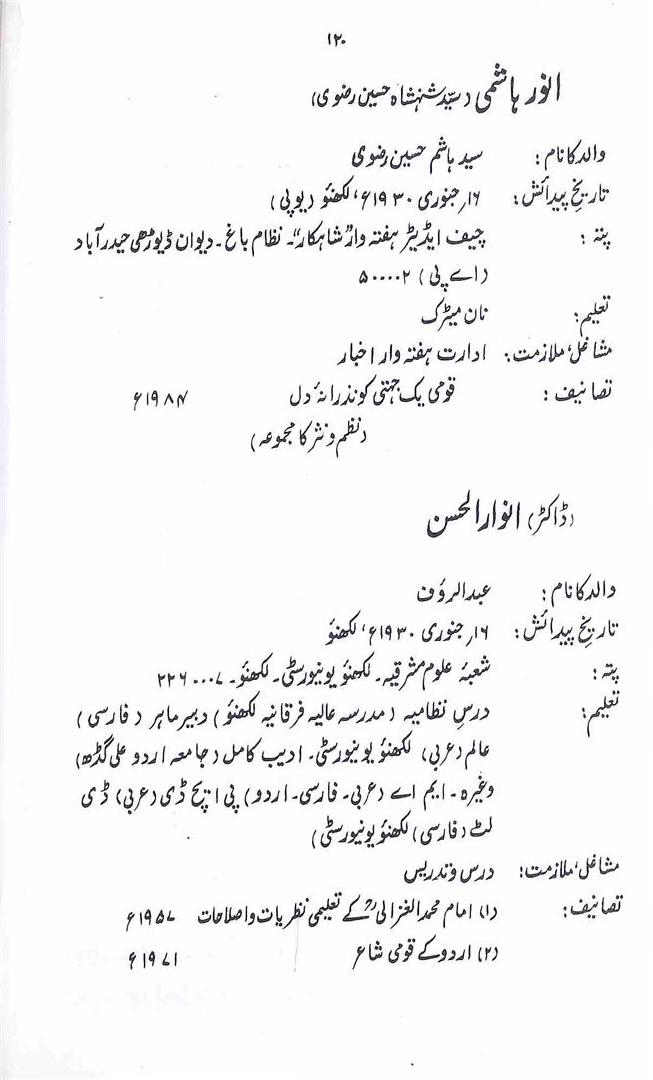 ۱۲۰
انور ہاشمی (سیّد شہنشاہ حسین رضوی)
والد کا نام: سید ہاشم حسین رضوی
تاریخِ پیدائش: ۱۶؍ جنوری ۱۹۳۰ء، لکھنؤ (یوپی)
پتہ: چیف ایڈیٹر ہفتہ وار "شاہکار"۔ نظام باغ۔ دیوان ڈیوڑھی حیدرآباد
(اے پی) ۵۰۰۰۰۲
تعلیم: نان میٹرک
مشاغل، ملازمت: ادارت ہفتہ وار اخبار
تصانیف: قومی یک جہتی کو نذرانۂ دل ۱۹۸۴ء
(نظم و نثر کا مجموعہ)
(ڈاکٹر) انوار الحسن
والد کا نام: عبدالرؤف
تاریخِ پیدائش: ۱۶؍ جنوری ۱۹۳۰ء، لکھنؤ
پتہ: شعبۂ علوم مشرقیہ۔ لکھنؤ یونیورسٹی۔ لکھنؤ۔ ۲۲۶۰۰۷
تعلیم: درسِ نظامیہ (مدرسہ عالیہ فرقانیہ لکھنؤ) دبیر ماہر (فارسی)
عالم (عربی) لکھنؤ یونیورسٹی۔ ادیب کامل (جامعہ اردو علی گڈھ)
وغیرہ۔ ایم اے (عربی۔ فارسی۔ اردو) پی ایچ ڈی (عربی) ڈی
لٹ (فارسی) لکھنؤ یونیورسٹی)
مشاغل، ملازمت: درس و تدریس
تصانیف: (۱) امام محمد الغزالیؒ کے تعلیمی نظریات و اصلاحات ۱۹۵۷ء
(۲) اردو کے قومی شاعر ۱۹۷۱ء